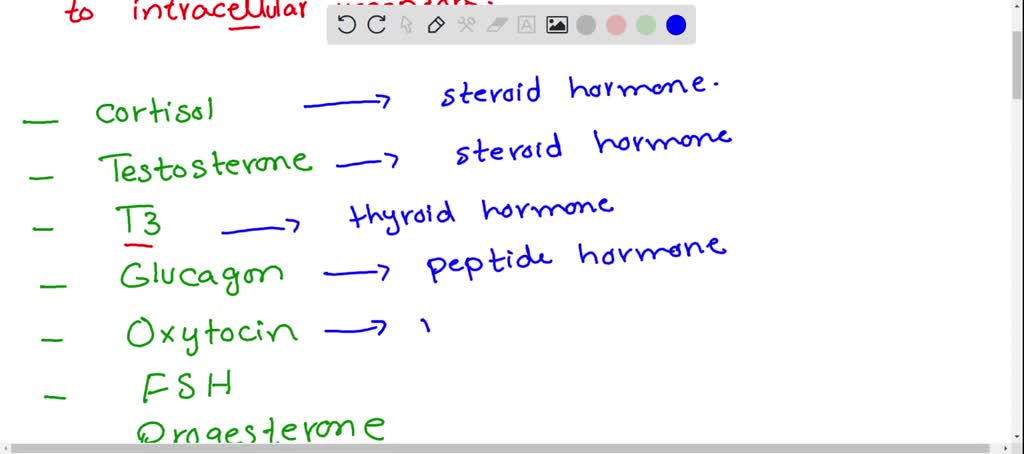 to intracellular
— cortisol → steroid hormone.
— Testosterone → steroid hormone
— T3 → thyroid hormone
— Glucagon → peptide hormone
— Oxytocin →
— FSH
Progesterone